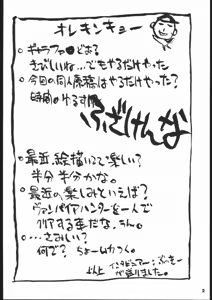 オレキンキュー
。ギャラファ●どお?
きびしいね…でもやるだけやった
。今回の同人原稿はやるだけやった?
時間のゆるす限
ふざけんな
。最近、絵描いてて楽しい?
半分 半分かな。
。最近の楽しみといえば?
ヴァンパイアハンターを一人で
クリアする事だな、うん。
。…さみしい?
何で? ちょームかつく。
以上 インタビュアー、
が送りました。
2